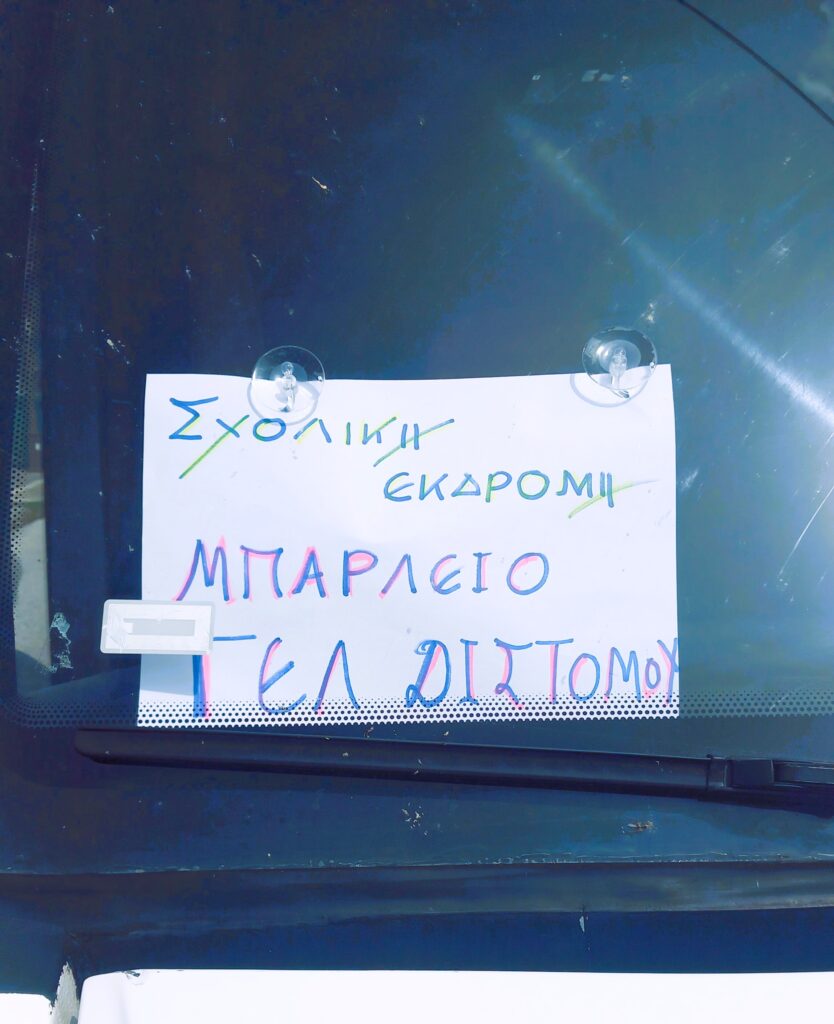 ΣΧΟΛΙΚΗ
ΕΚΔΡΟΜΗ
ΜΠΑΡΛΕΙΟ
ΓΕΛ ΔΙΣΤΟΜΟΥ